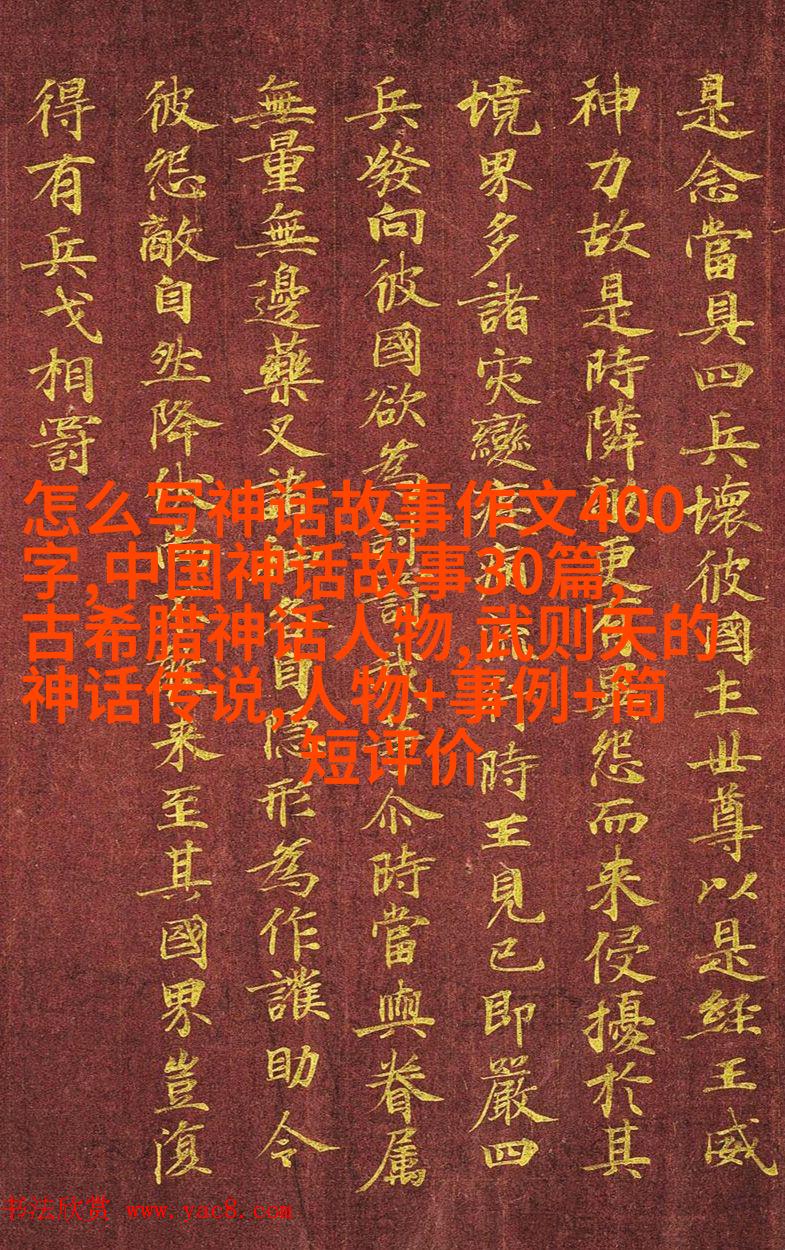 是念當具四兵壞彼國土世尊以是經王威
神力故是時隣敵更有異怨而来侵擾於其
境界多諸灾變疫病流行時王見已即嚴四
兵發向彼國欲為討罰我等尒時當與眷属
無量無邊藥叉諸神各自隱形為作護助令
彼怨敵自然降伏尚不敢来至其國界豈復
得有兵戈相罸
怎么写神话故事作文400
字,中国神话故事30篇,
古希腊神话人物,武则天的
神话传说,人物+事例+简
短评价
书法欣赏 www.yac8.com